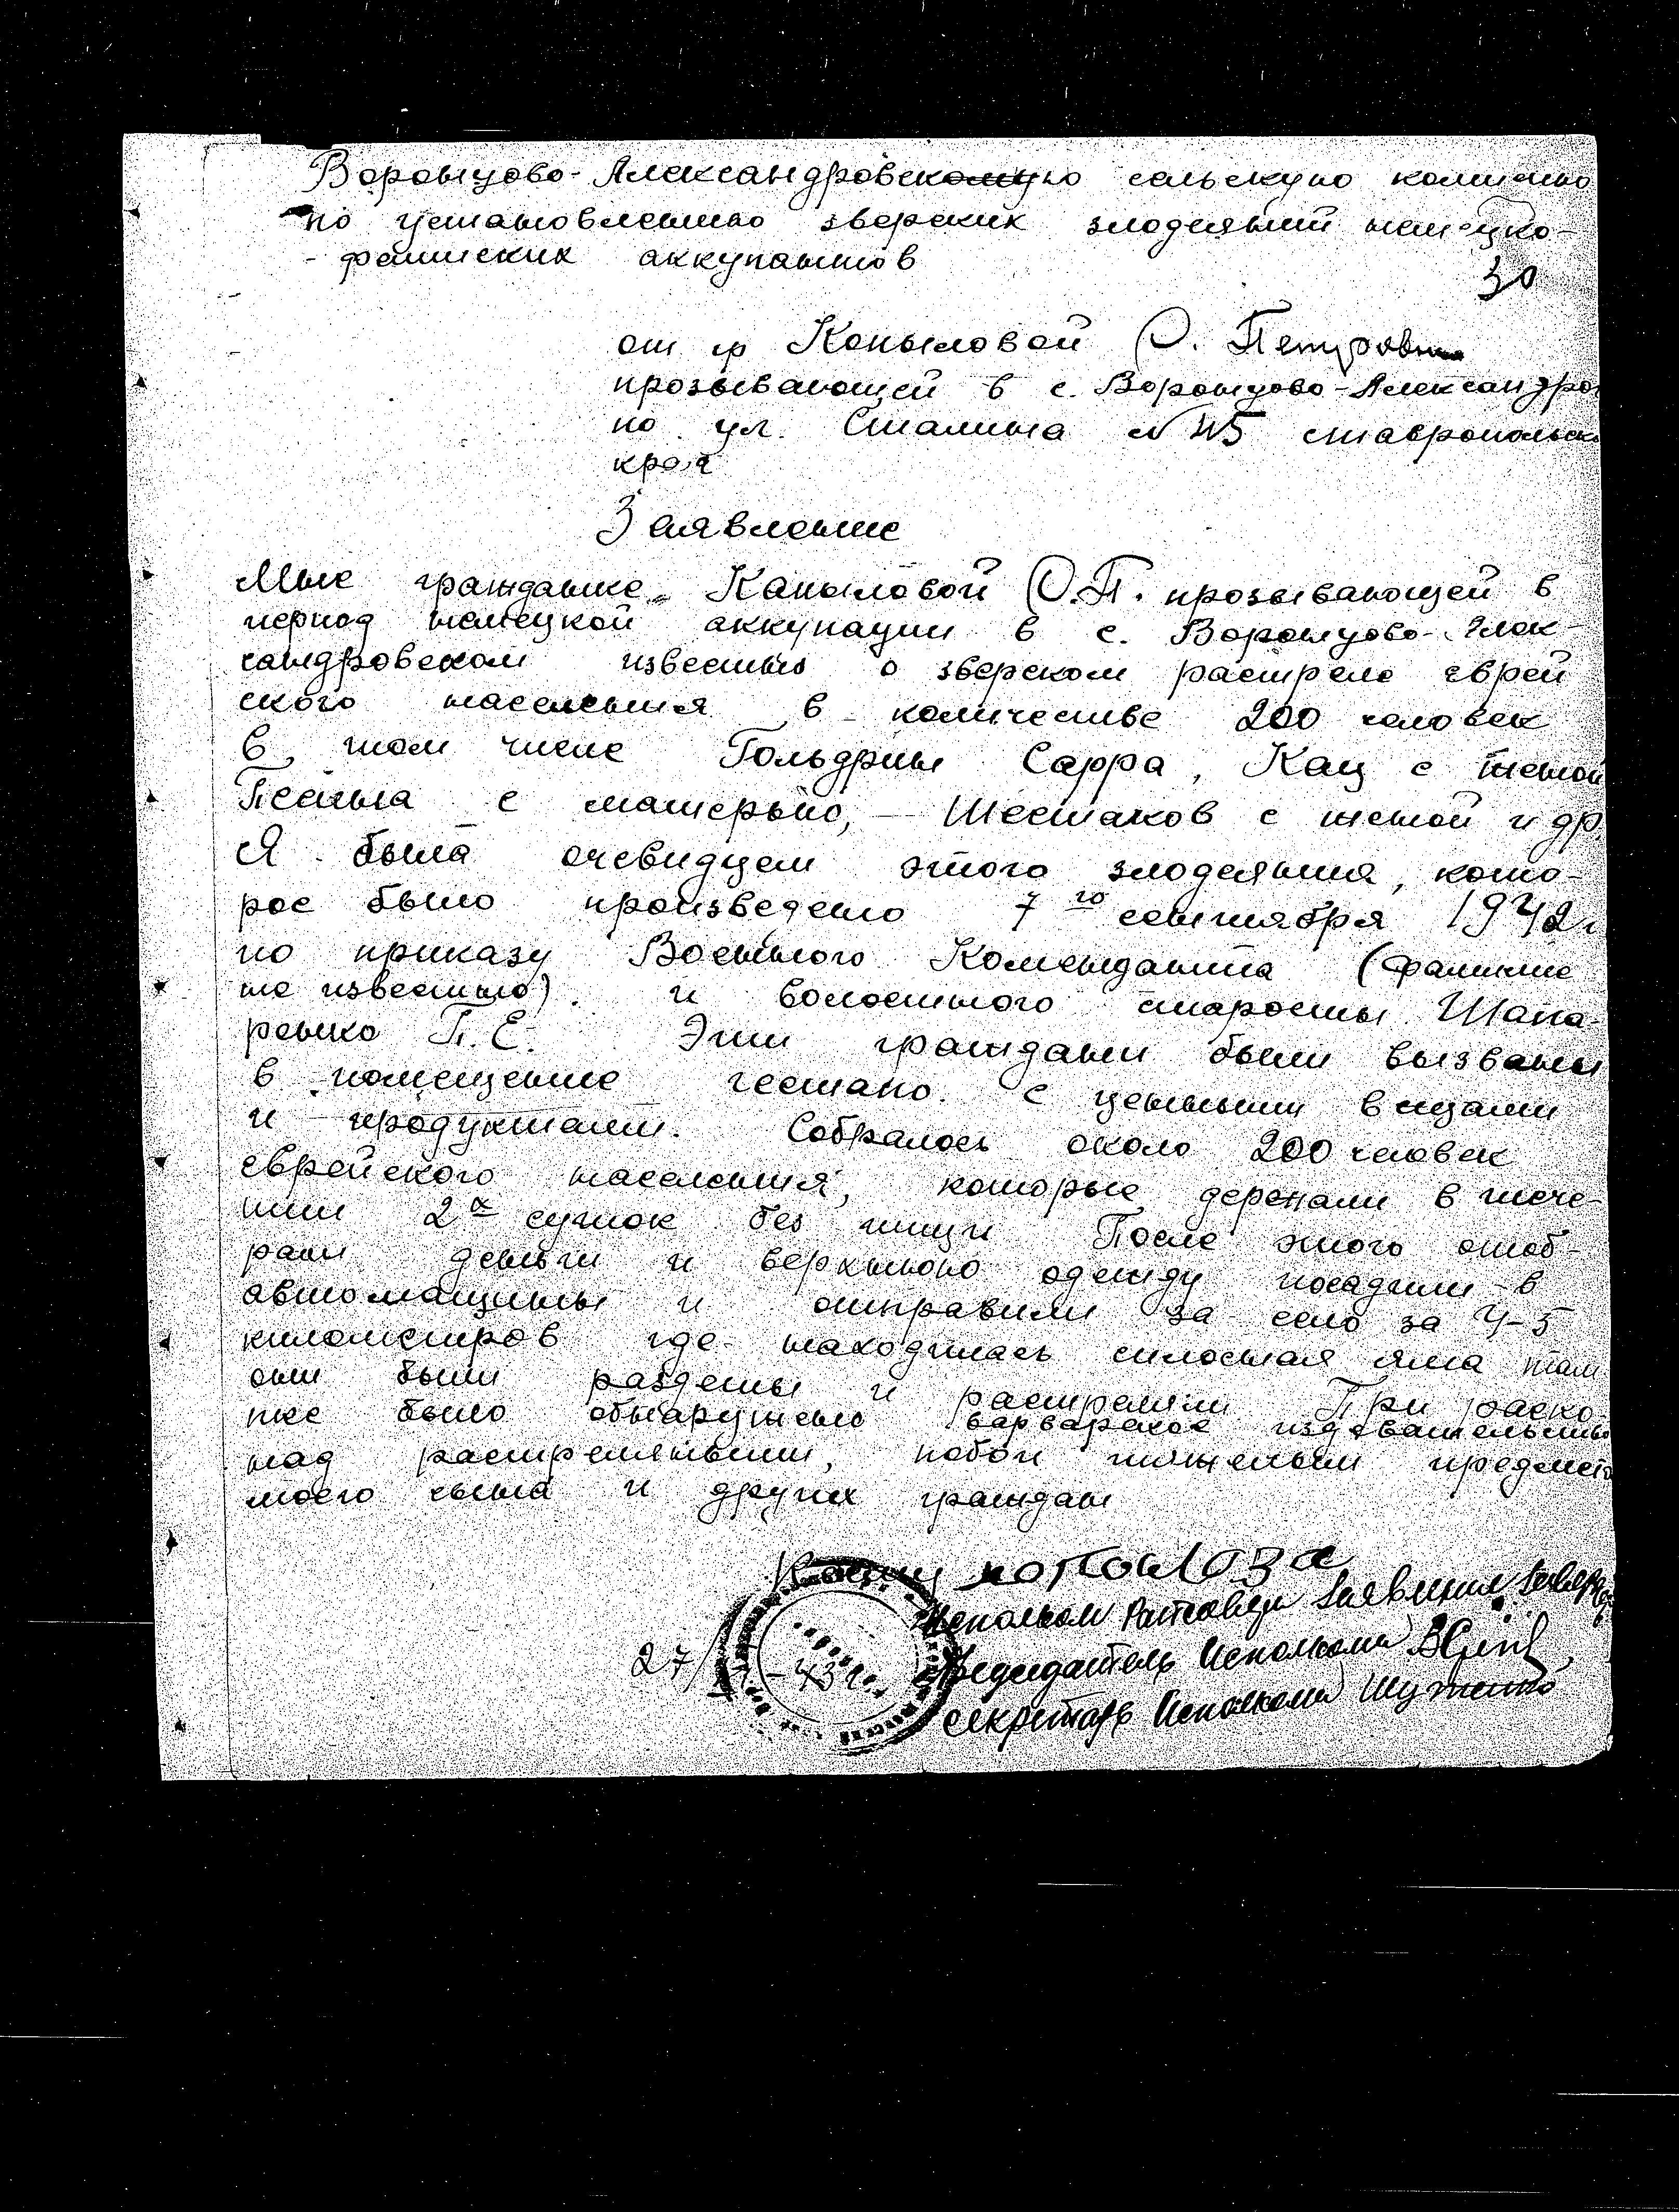 Воронцово-Александровскомую сельскую комисию
по установлению зверских злодеяний немецко-
-фашиских аккупантов
30
от гр Копыловой О. Петровн
прозывающей в с. Воронцово-Александро
по ул. Сталина № 115 ставропольск
края
Заявление
Мне гражданке Капыловой О.П. прозывающей в
период немецкой аккупации в с. Воронцово-Алек-
сандровском известно о зверском растреле еврей
ского населения в количестве 200 человек
в том числе Гольдрин Сарра, Кац с женой
с матерью, Шестаков с женой и др.
Я была очевидцем этого злодеяния, кото-
рое было произведено 7го сентября 1942г
по приказу Военного Комендантa (фамилие
не известно). и волостного старосты Шапа-
ренко П.Е. Эти граждани были вызваны
в помещение гестапо. с ценными вещами
и продуктами. Собралось около 200 человек
еврейского населения, которые держали в тече-
нии 2х суток без пищи После этого отоб-
рали деньги и верхнюю одежду посадили в
автомашины и отправили за село за 4-5
километров где находилась силосная яма там
они были раздеты и растреляни При раско
пке было обнаружено варварское издевательство
над растреляными, побои тяжелыми предмет
моего сына и других граждан
27/ -43г.
Исполком Заявления завер
Председатель Исполкома
Секретарь Исполкома